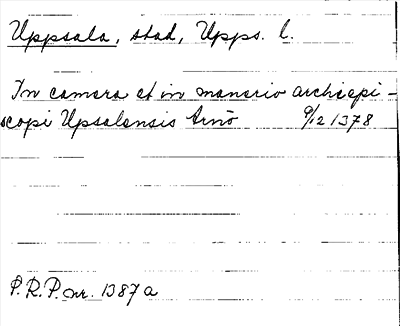 Uppsala, stad, Upps. l.
In camera et in manerio archiepi-
scopi Upsalensis Arnö 9/12 1378
P.R.P. nr. 1387 a